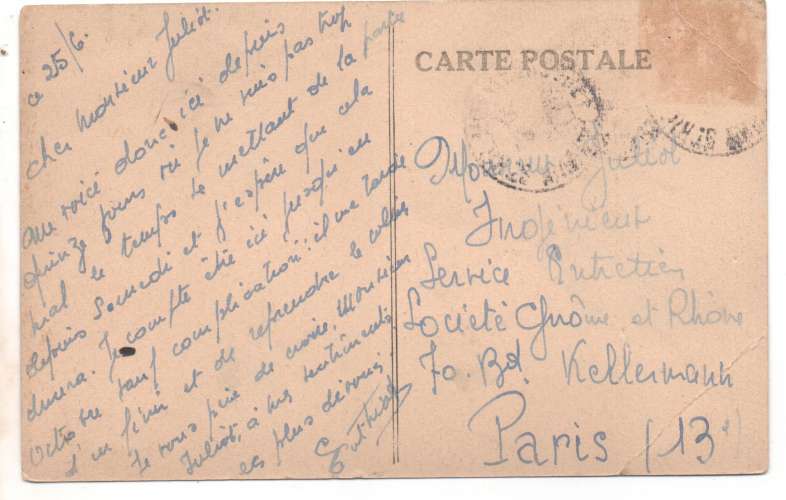 ce 25/6.
Cher Monsieur Juliot.
me voici donc ici depuis
quinze jours où je ne suis pas trop
mal le temps se mettant de la partie
depuis Samedi et j'espère que cela
durera. Je compte être ici jusqu'en
Octobre sauf complication: il me tarde
d'en finir et de reprendre le collier
Je vous prie de croire, Monsieur
Juliot, à mes sentiments
les plus dévoués.
CARTE POSTALE
Monsieur Juliot
Ingénieur
Service Entretien
Société Gnôme et Rhône
70. Bd. Kellermann
Paris (13e)